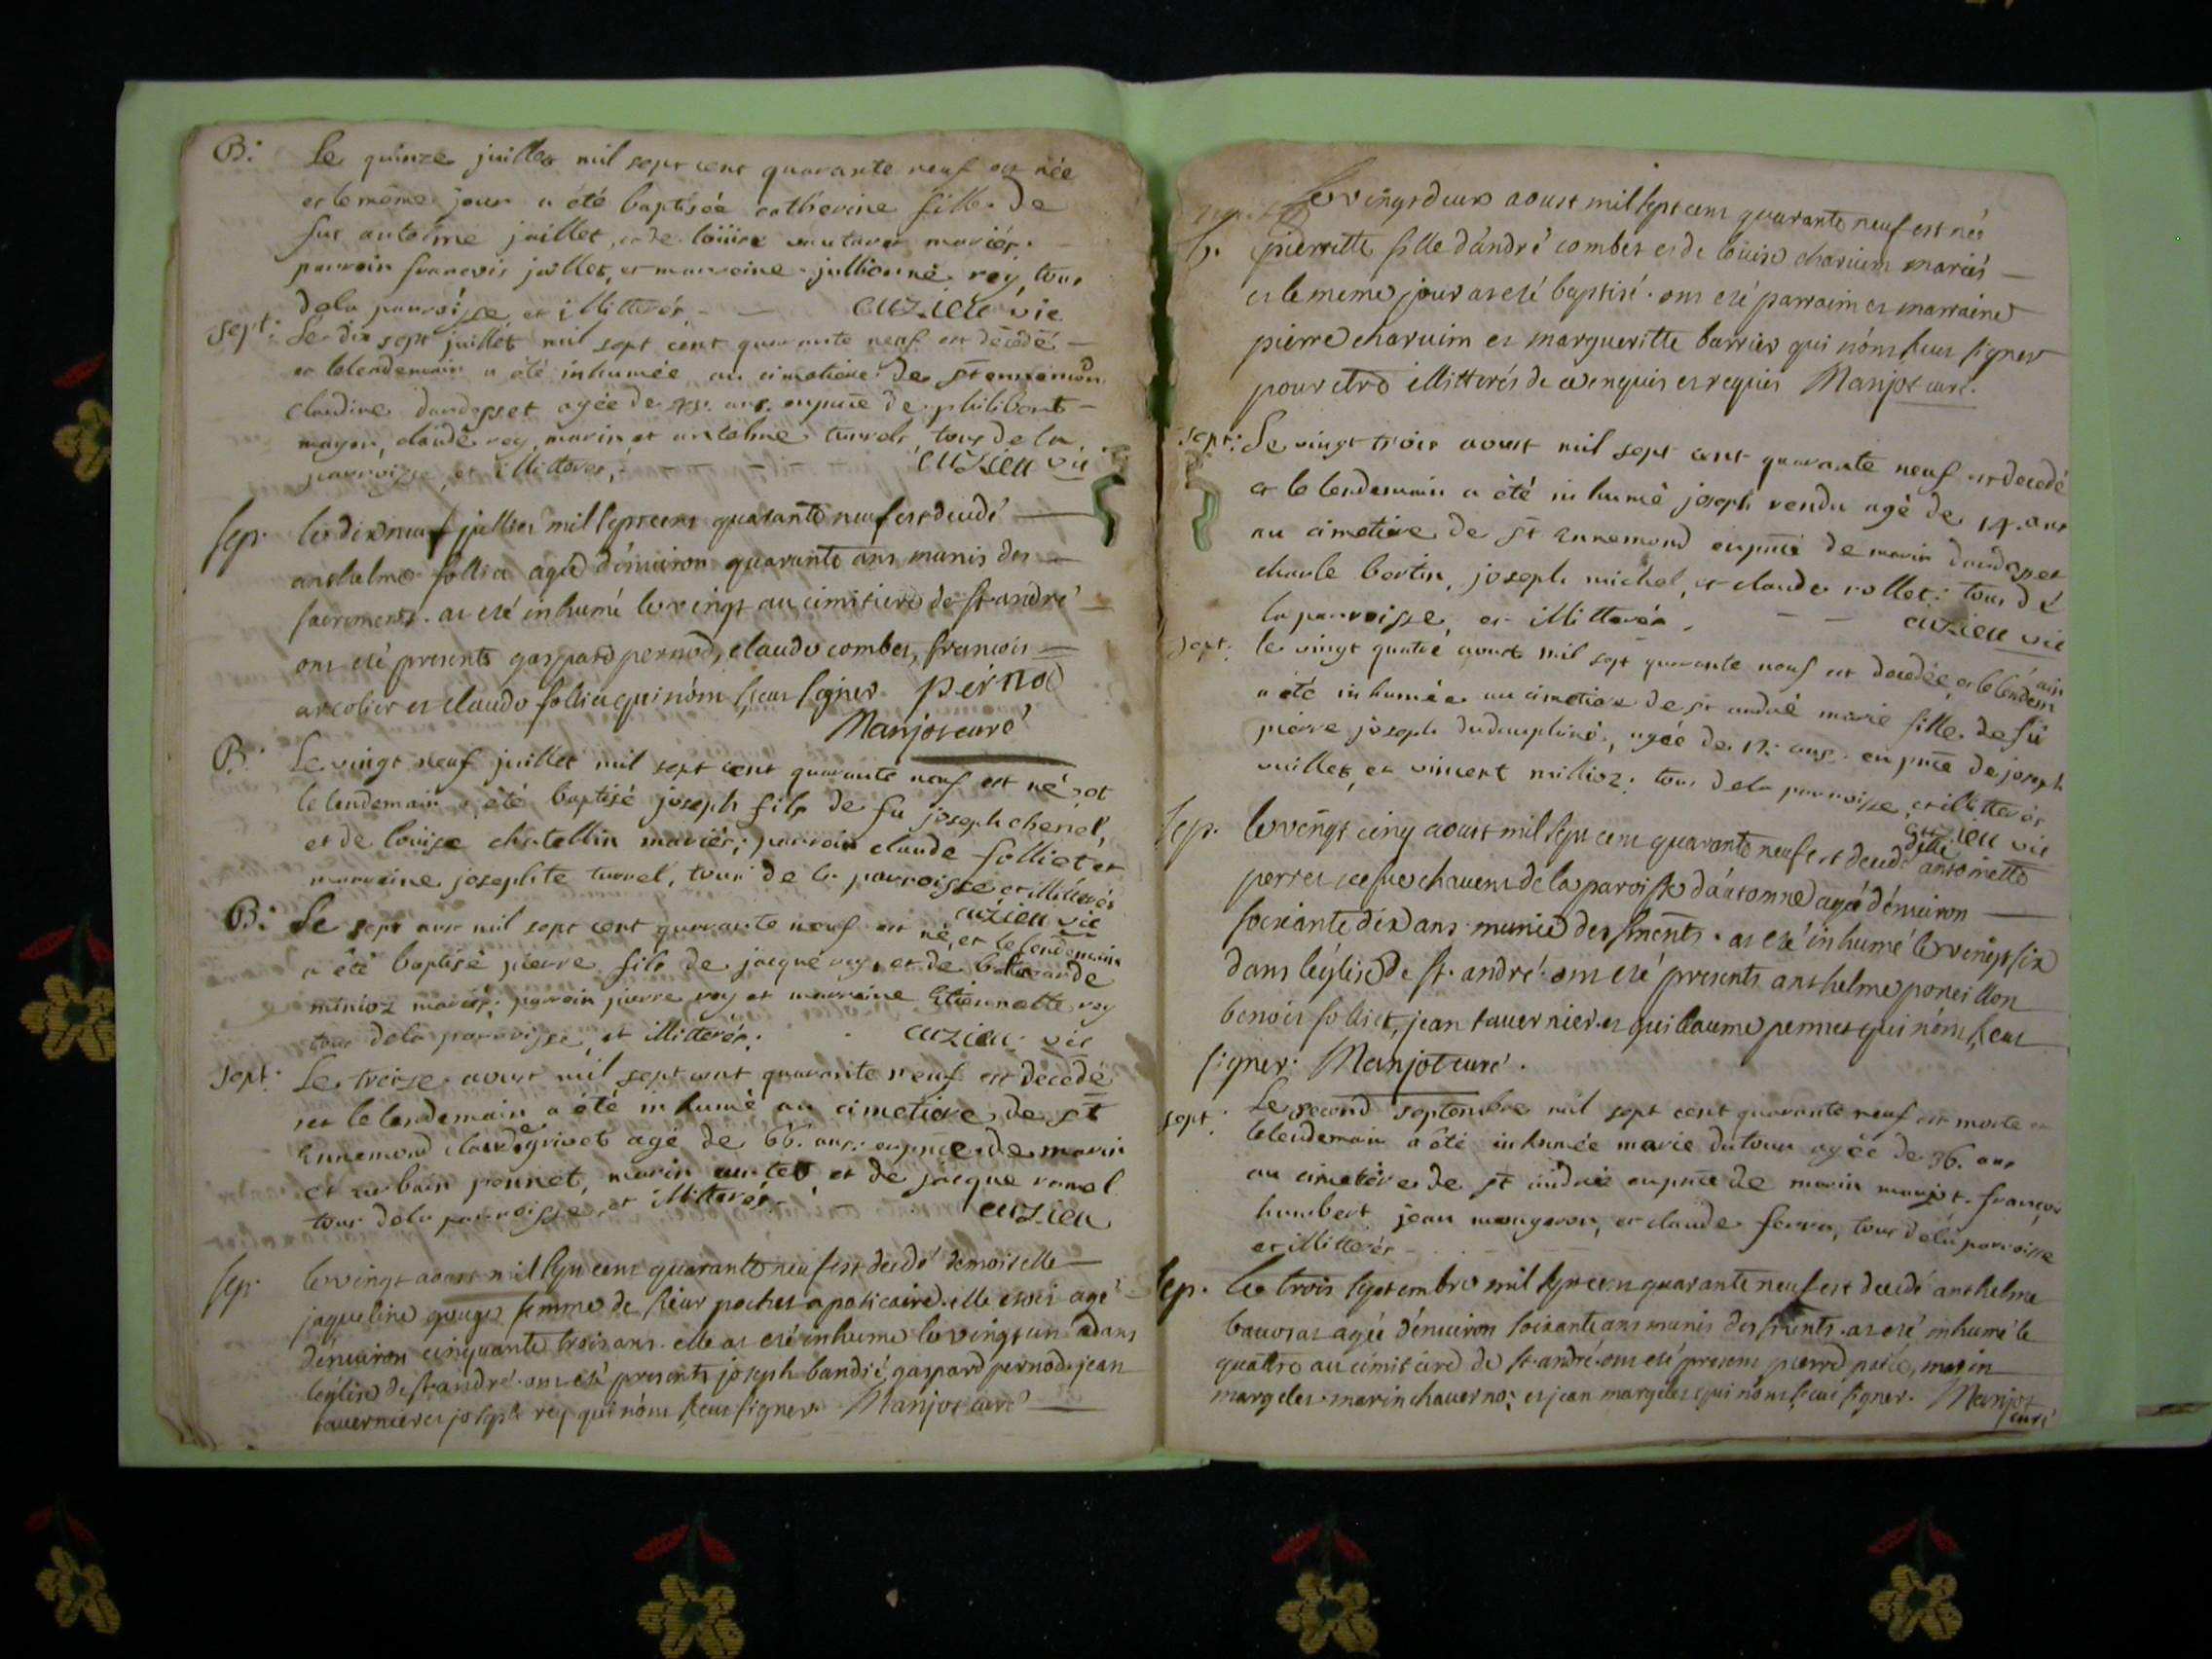 B: Le quinze juillet mil sept cent quarante neuf est née
et le même jour a été baptisée catherine fille de
fut antelme juillet, et de loüise mariés.
parrain francois juillet, et marraine jullienne rey, tous
dela parroisse et illitterés. cuzieu vic
sept: Le dix sept juillet mil sept cent quarante neuf est décédé
et le lendemain a été inhumée au cimetiere de St ennemond
claudine dandesset agée de ans. en pnce de philibert
mayer, claude rey, marin et antelme turrel, tous de la
parroisse, et illitteres, cuzieu vic
sep. le dix neuf jullier mil sept cens quarante neuf est decedé
anthelme follier agé d'énuiron quarante ans munis des
sacrements. at eté inhumé le vingt au cimitiere de st andré
ont eté presents gaspard pernod, claude combet, francois
et claude follier qui nóm sceus signer pernod
Manjot curé
B: Le vingt neuf juillet mil sept cent quarante neuf est né, et
le lendemain a été baptisé joseph fils de fu joseph chenel,
et de loüise chatellin mariés; parrain claude folliet et
marraine josephte turrel, tous de la parroisse et illiterés
cuzieu vic
B: Le sept mil sept cent quarante neuf est né, et le lendemain
a été baptisé pierre fils de jacque rey, et de
mariés: parrain pierre rey et marraine Etiennette rey
tous dela parroisse, et illitterés: cuzieu vic
sept: Le treize aoust mil sept cent quarante neuf est decedé
et le lendemain a été inhumé au cimetiere de st
Ennemond claude grivet agé de 66. ans: en pnce de marin
et urbain pennet, marin et de jacque ramel
tous dela parroisse, et illitterés. cuzieu
sep. le vingt aoust mil sept cens quarante neuf est decedé demoiselle
jaqueline gouge femme de sieur pochet apoticaire. elle agé
d'enuiron cinquante trois ans. elle at eté inhumé le vingt un dans
leglise de st andré. ont eté presents joseph bandié, gaspard pernod. jean
tauernier et joseph rey qui nóm sceus signer. Manjot curé
le vingt deux aoust mil sept cens quarante neuf est née
b. pierrette fille d'andré combet et de loüise charuin mariés
et le meme jour at eté baptisé. ont eté parrain et marraine
pierre charuin et margueritte barrier qui nóm sceus signer
pour etre illitterés de ce enquis et requis Manjot curé.
sept: Le vingt trois aoust mil sept cent quarante neuf est decedé
et le lendemain a été inhumé joseph vendu agé de 14. ans
au cimetiere de st Ennemond en pnce de marin dandesset
charle bertin, joseph michel, et claude rollet: tous dé
la parroisse, et illitterés. cuzieu vic
sept. le vingt quatre aoust mil sept quarante neuf est decedée, et le lendemain
a été inhumée au cimetiere de st andré marie fille de fû
pierre joseph dudauphiné, agée de ans. en pnce de joseph
vuillet, et vincent millioz: tous dela parroisse, et illitterés
cuzieu vic
sep. le vingt cinq aoust mil sept cens quarante neuf est decedé dlle antoinette
perret chauens de la paroisse agé d'énuiron
soixante dix ans munie des sments. at eté inhumé le vingt six
dans léglise de st. andré. ont eté presents anthelme poncillon
benoit folliet, jean tauernier et guillaume pennet qui nóm sceus
signer. Manjot curé.
sept: Le second septembre mil sept cent quarante neuf est morte et
le lendemain a été inhumée marie dutour agée de 36. ans
au cimetiére de st andrée en pnce de marin manjot. françois
humbert jean mongeron, et claude ferra, tous dela parroisse
et illitterés
sep. Le trois septembre mil sept cens quarante neuf est decedé anthelme
agée d'énuiron soixante ans munis des sments. at eté inhumé le
quattre au cimitiere de st andré. ont eté presens pierre marin
margeles. marin chauernoz et jean margeles qui nóm sceus signer. Manjot
curé